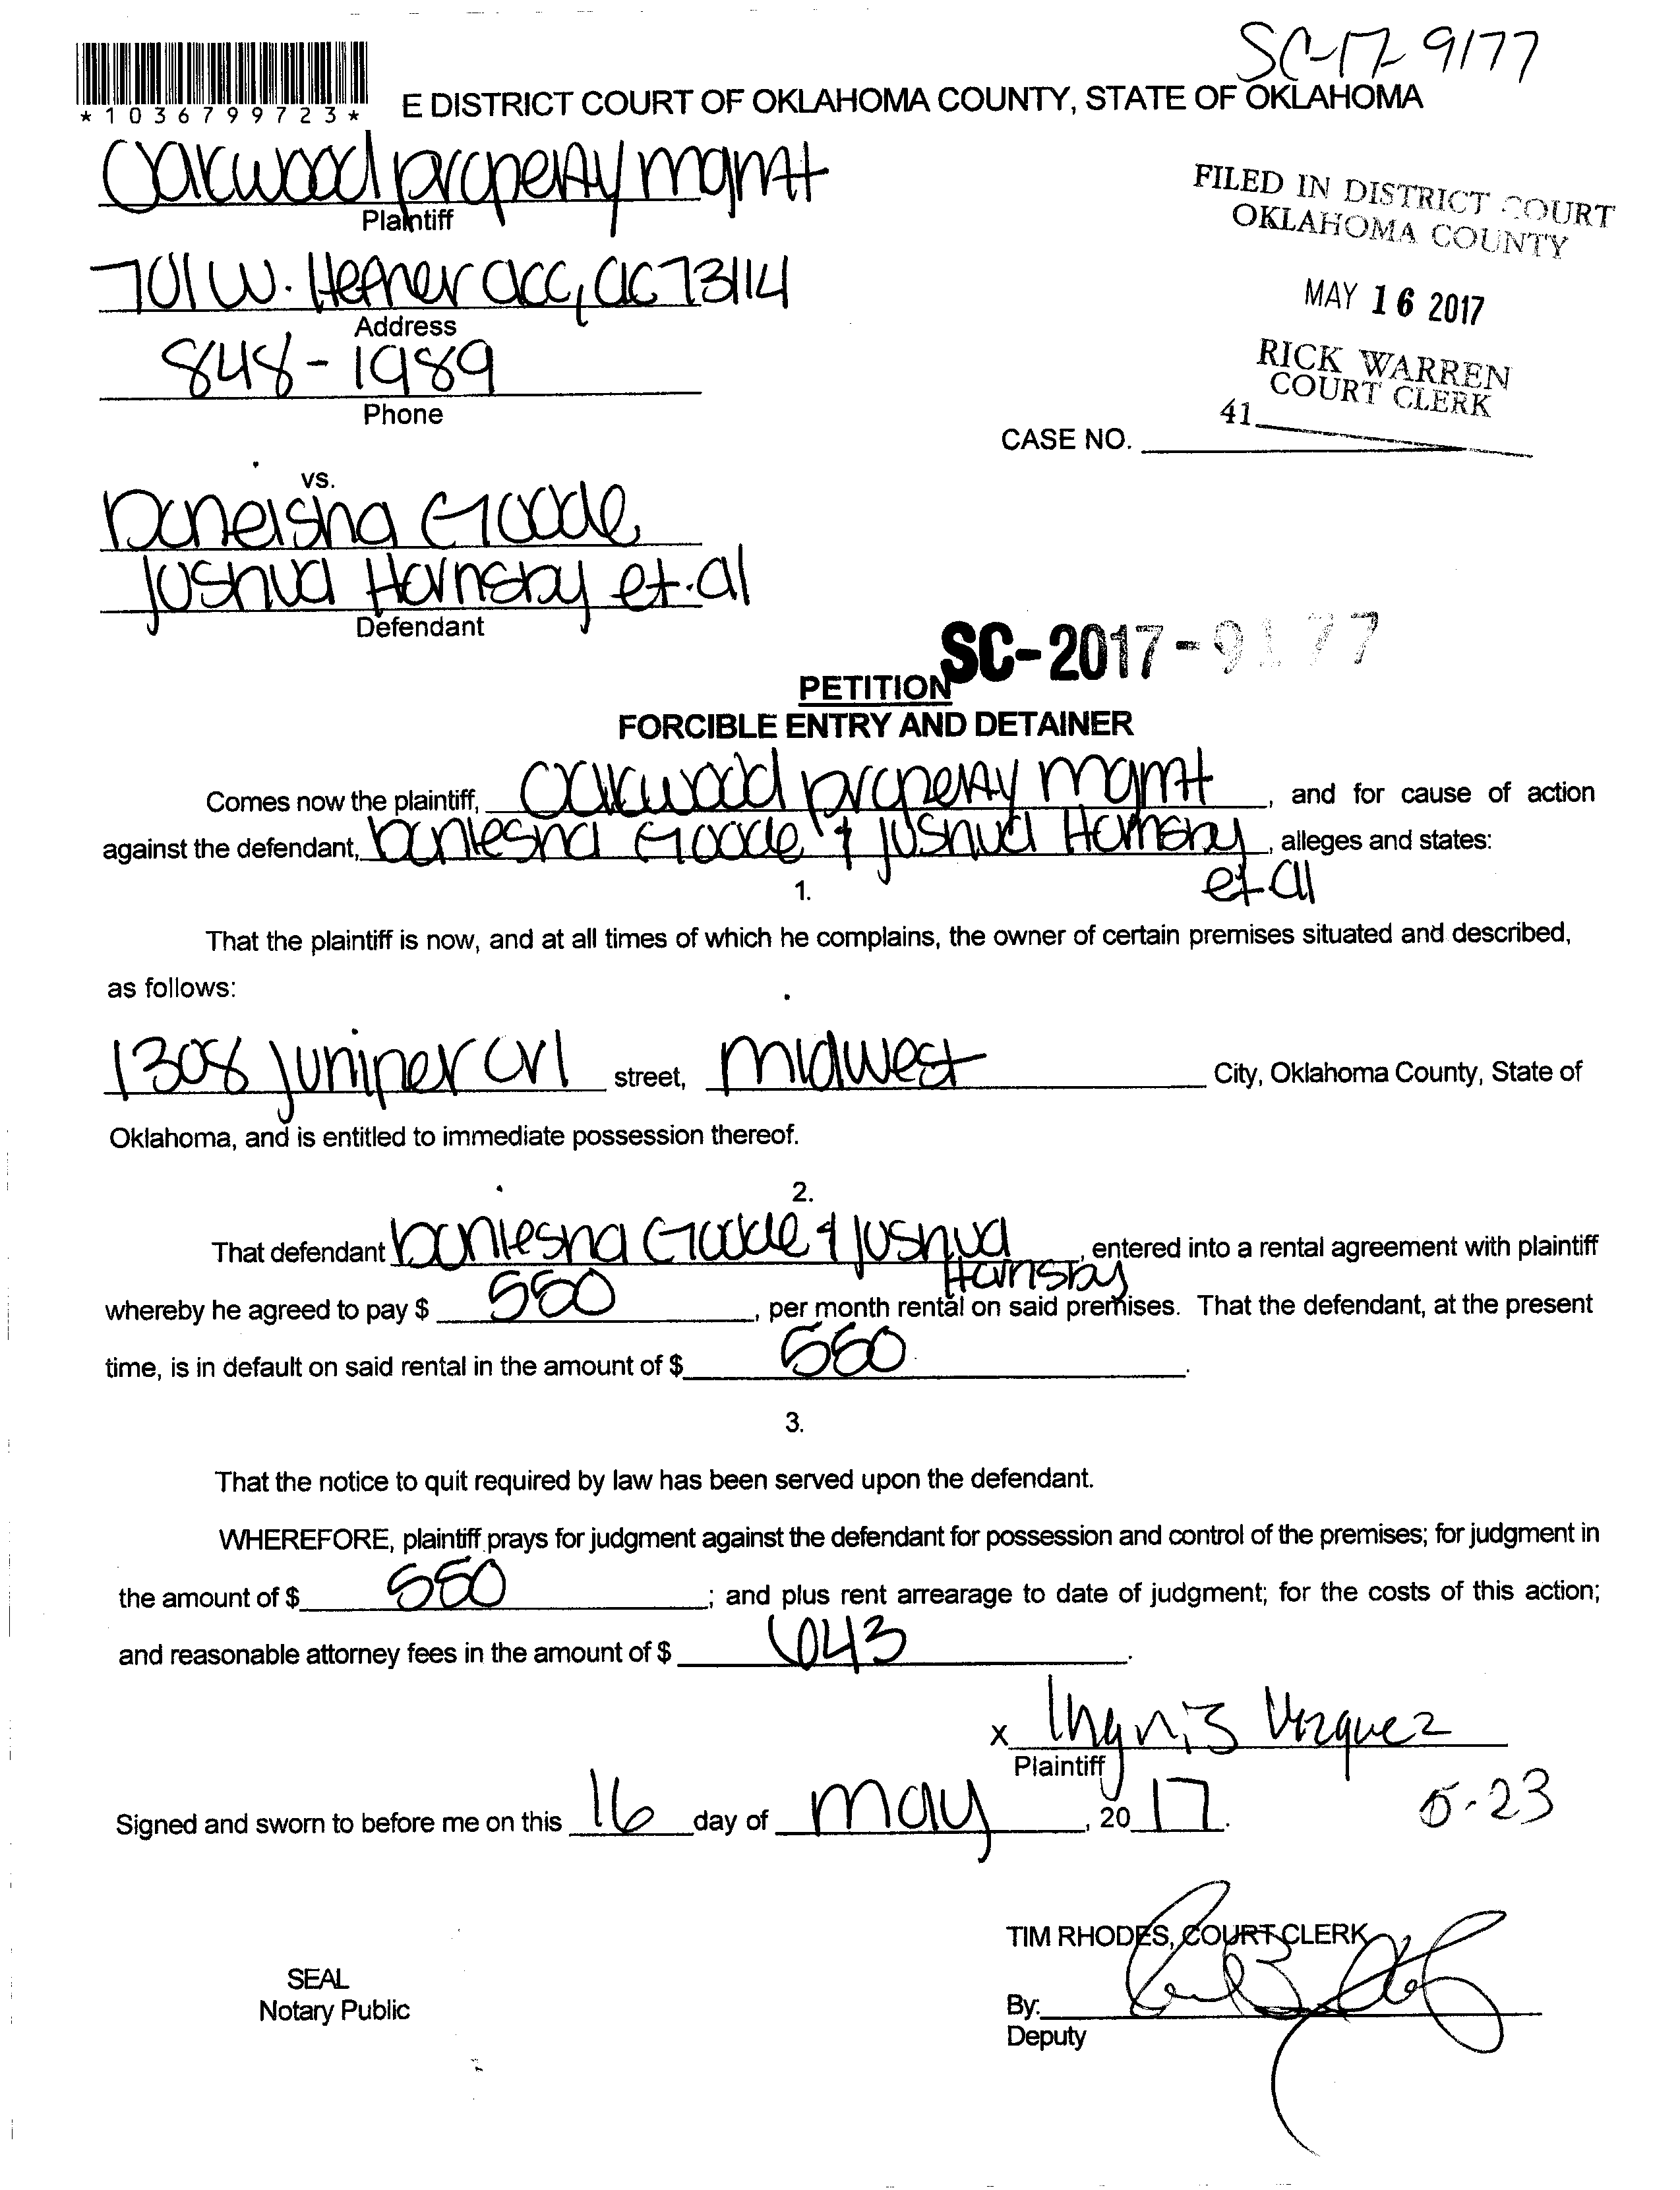 SC-17-9177
*1036799723*
E DISTRICT COURT OF OKLAHOMA COUNTY, STATE OF OKLAHOMA
Oakwood property mgmt
Plaintiff
FILED IN DISTRICT COURT
OKLAHOMA COUNTY
701 W. Hefner OKC, OK 73114
Address
MAY 16 2017
848-1989
Phone
RICK WARREN
COURT CLERK
41
CASE NO.
vs.
Goode
Joshua Hornsby et. al
Defendant
SC-2017-9177
PETITION
FORCIBLE ENTRY AND DETAINER
Comes now the plaintiff, Oakwood property mgmt, and for cause of action
against the defendant, Goode & Joshua Hornsby, alleges and states:
et al
1.
That the plaintiff is now, and at all times of which he complains, the owner of certain premises situated and described,
as follows:
1308 Juniper street, midwest City, Oklahoma County, State of
Oklahoma, and is entitled to immediate possession thereof.
2.
That defendant Goode & Joshua, entered into a rental agreement with plaintiff
Hornsby
whereby he agreed to pay $ 550, per month rental on said premises. That the defendant, at the present
time, is in default on said rental in the amount of $ 550.
3.
That the notice to quit required by law has been served upon the defendant.
WHEREFORE, plaintiff prays for judgment against the defendant for possession and control of the premises; for judgment in
the amount of $ 550; and plus rent arrearage to date of judgment; for the costs of this action;
and reasonable attorney fees in the amount of $ 643.
X Vazquez
Plaintiff
Signed and sworn to before me on this 16 day of may, 2017.
5-23
TIM RHODES, COURT CLERK
SEAL
Notary Public
By:
Deputy